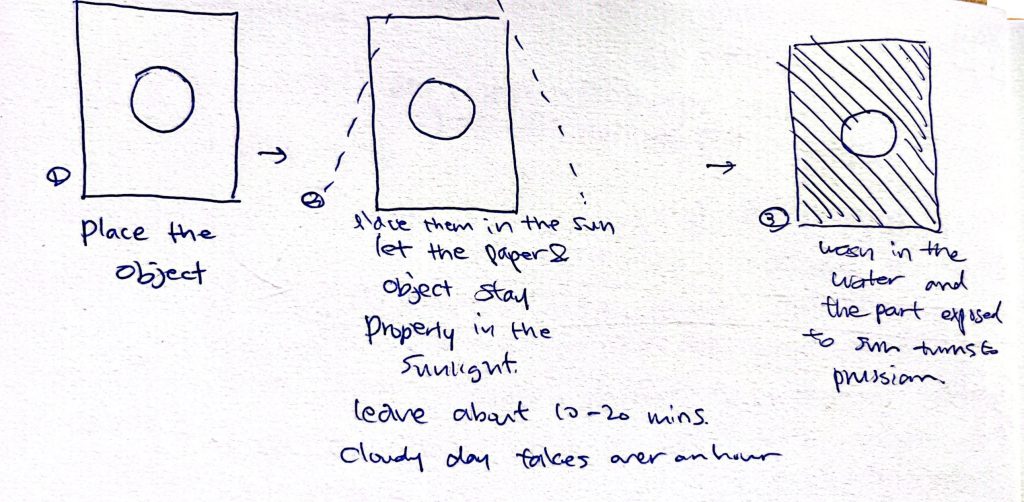 ①
Place the
object
②
Place them in the sun
let the paper &
object stay
Property in the
Sunlight.
leave about 10-20 mins.
Cloudy day takes over an hour
③
wash in the
water and
the part exposed
to sun turns to
prussian.